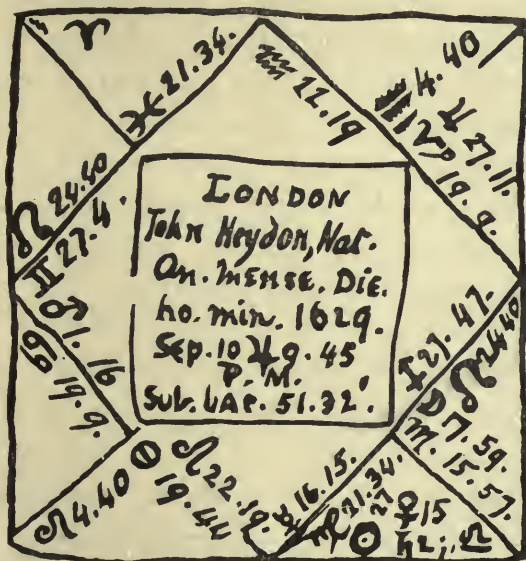 ♈
♓ 21.34.
♒ 22.19
4.40
♑ ♃ 27.11.
19.9.
☊ 24.40
♊ 27.4.
♂ 1.16
♋ 19.9.
LONDON
John Heydon, Nat.
An. MENSE. Die.
ho. min. 1629.
Sep. 10 ♃ 9.45
P.M.
Sub. LAP. 51.32'
47.
24.40
☽ 7.59.
♏ 15.57.
♌ 4.40
♌ 22.19.
19.44
16.15.
♍ 21.34.
27
♀ 15
☉ ♄ 2 ♎